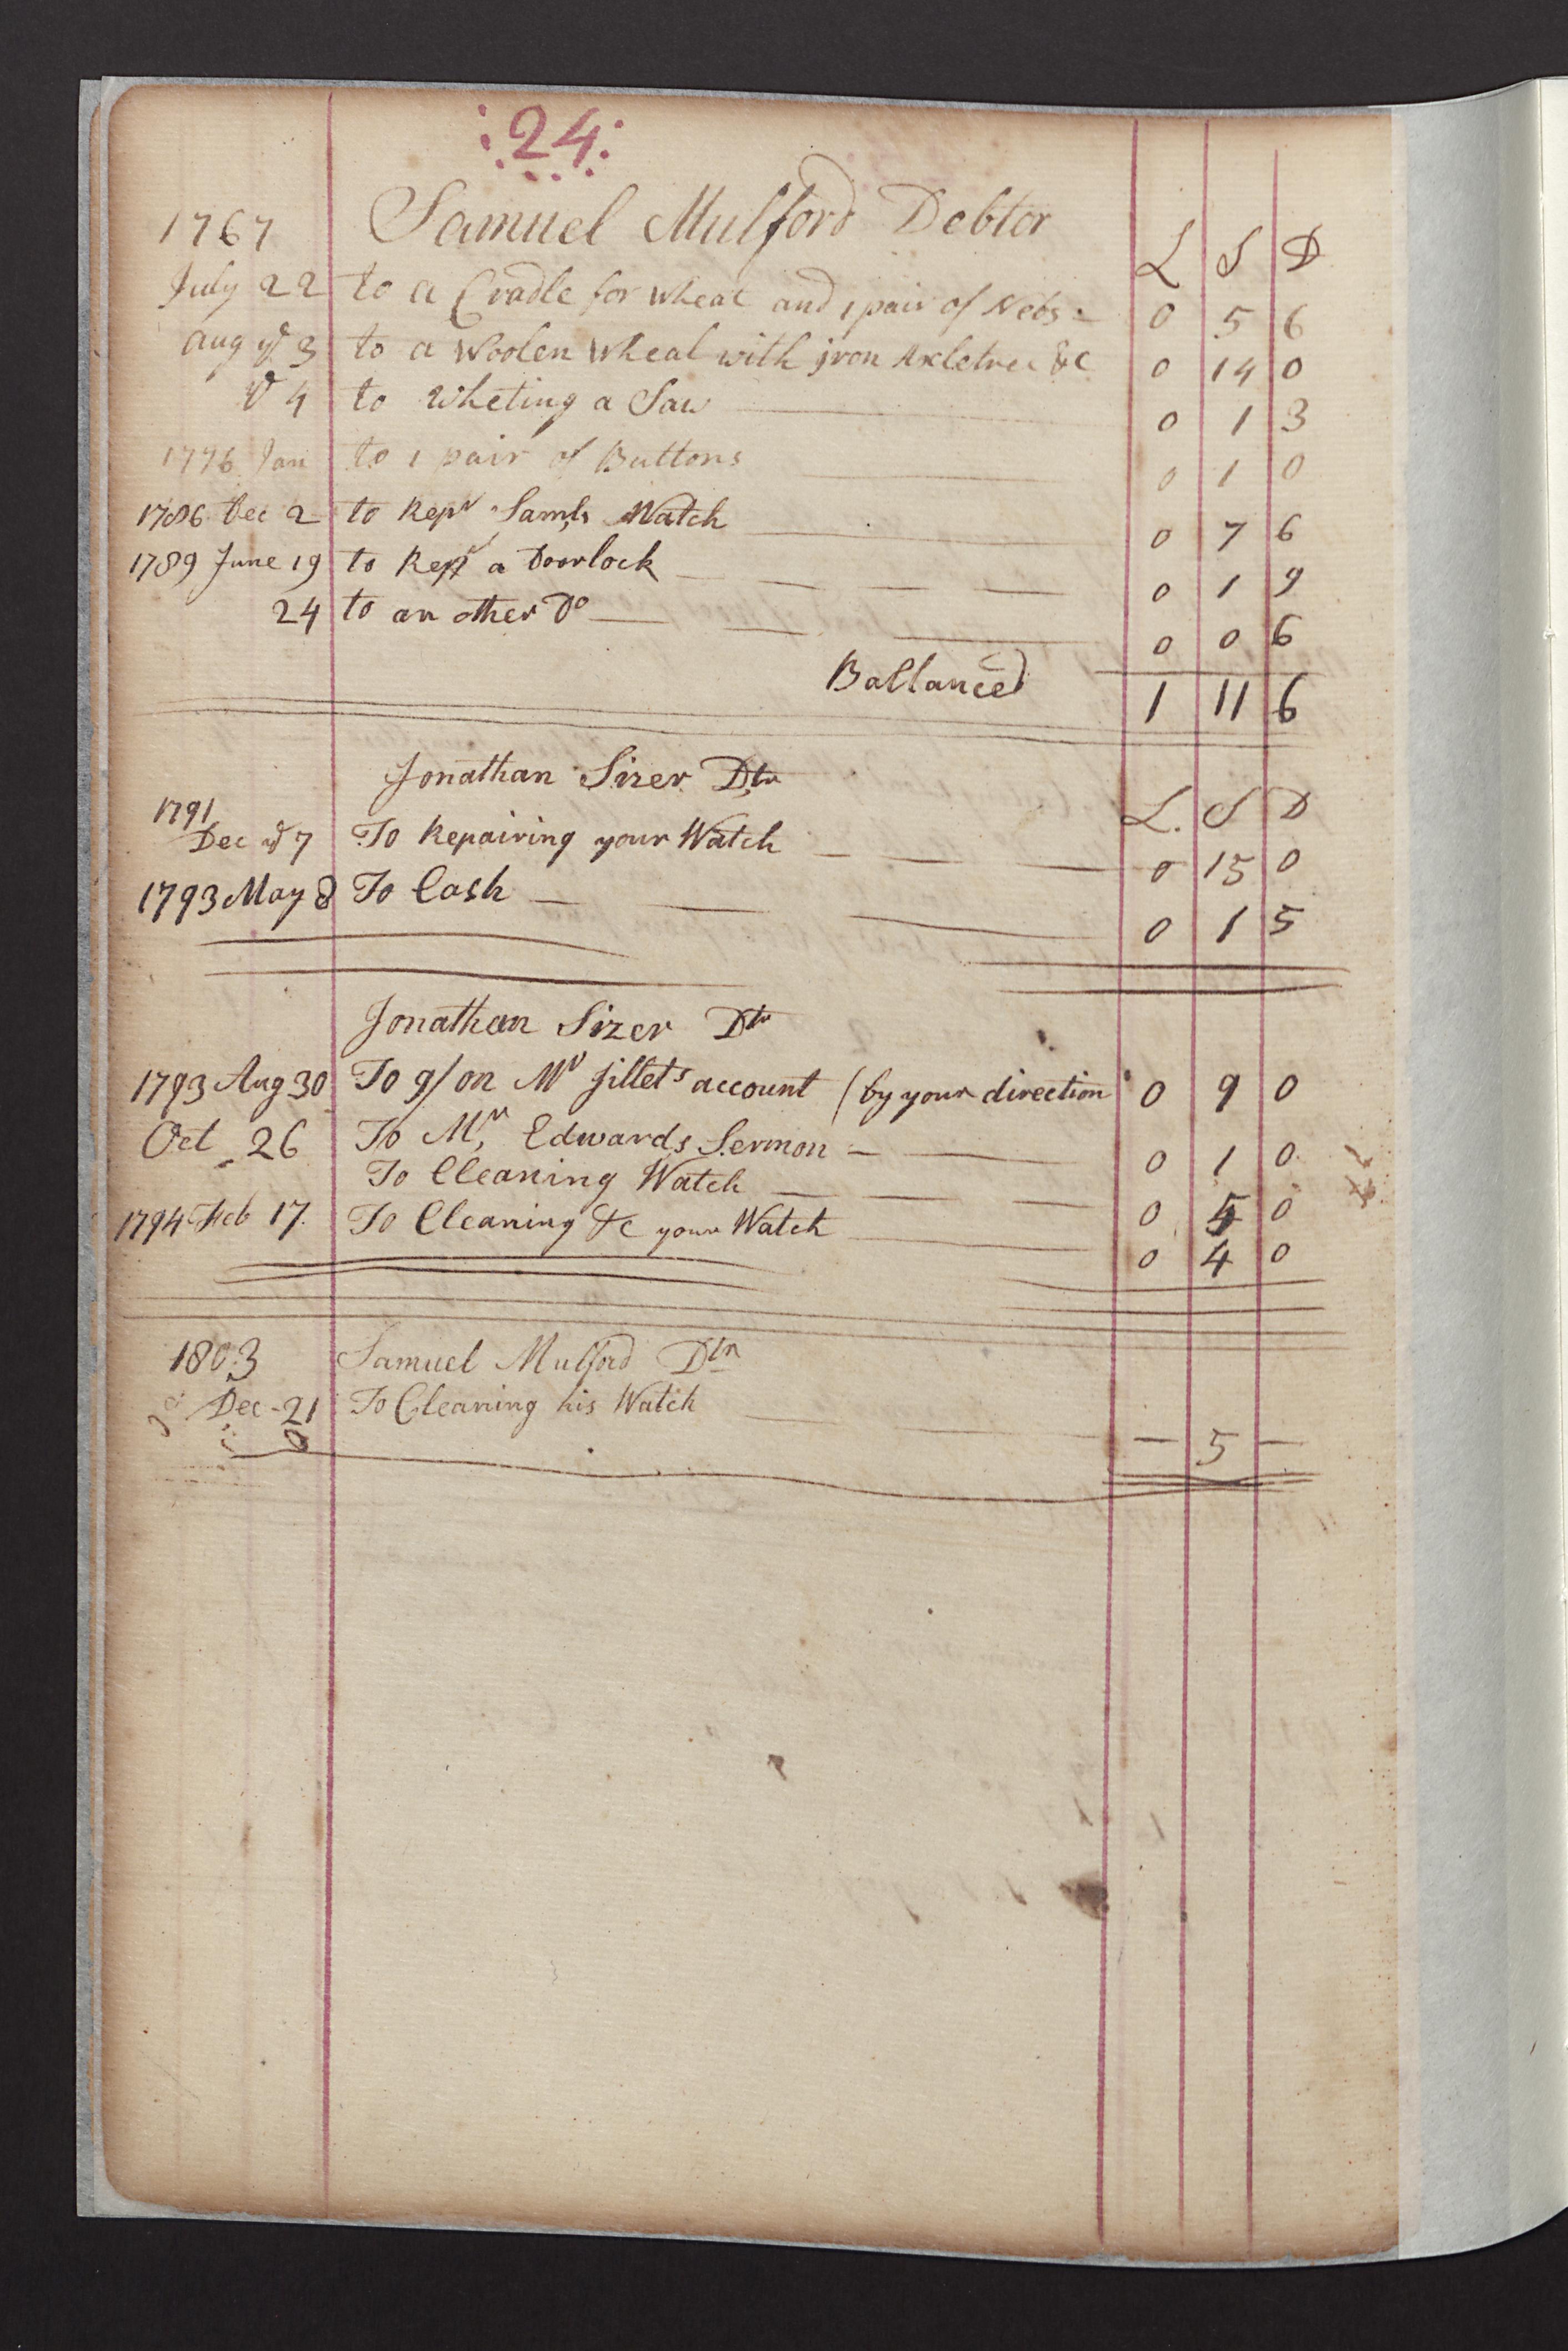 :24:
1767 Samuel Mulford Debtor
L S D
July 22 to a Cradle for wheat and 1 pair of Nebs 0 5 6
Aug ye 3 to a Woolen Wheal with jron Axletree &c 0 14 0
ye 4 to Wheting a Saw 0 1 3
1776 Jan to 1 pair of Buttons 0 1 0
1786 Dec 2 to Repr Samls Watch 0 7 6
1789 June 19 to Repr a Doorlock 0 1 9
24 to an other Do 0 0 6
Ballanced 1 11 6
Jonathan Sizer Dtr
L. S D
1791
Dec ye 7 To Repairing your Watch 0 15 0
1793 May 8 To Cash 0 1 5
Jonathan Sizer Dtr
1793 Aug 30 To 9/ on Mr Jillets account (by your direction 0 9 0
Oct 26 To Mr Edwards Sermon 0 1 0
To Cleaning Watch 0 5 0
1794 Feb 17. To Cleaning &c your Watch 0 4 0
1803 Samuel Mulford Dtr
Dec - 21 To Cleaning his Watch — 5 —